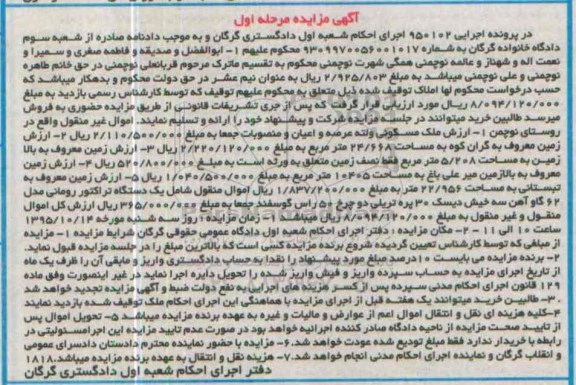 آگهی مزایده مرحله اول
در پرونده اجرایی ۹۵۰۱۰۲ اجرای احکام شعبه اول دادگستری گرگان و به موجب دادنامه صادره از شعبه سوم
دادگاه خانواده گرگان به شماره ۹۳۰۹۹۷۰۰۵۶۰۰۱۰۱۷ محکوم علیهم ۱- ابوالفضل و صدیقه و فاطمه صغری و سمیرا و
نعمت اله و شهناز و عالمه نوچمنی همگی شهرت نوچمنی محکوم به تقسیم ماترک مرحوم قربانعلی نوچمنی در حق خانم طاهره
نوچمنی و علی نوچمنی میباشد به مبلغ ۲/۹۲۵/۸۰۳ ریال به عنوان نیم عشر در حق دولت محکوم و بدهکار میباشد که
حسب درخواست محکوم لها املاک توقیف شده ذیل متعلق به محکوم علیهم توقیف که توسط کارشناس رسمی بازدید به مبلغ
۸/۰۹۴/۱۲۰/۰۰۰ ریال مورد ارزیابی قرار گرفت که پس از جری تشریفات قانونی از طریق مزایده حضوری به فروش
میرسد طالبین خرید میتوانند در جلسه مزایده شرکت و پیشنهاد خود را ارائه و تسلیم نمایند. اموال غیر منقول واقع در
روستای نوچمن ۱- ارزش ملک مسکونی ولته عرصه و اعیان و منصوبات جمعا به مبلغ ۲/۱۱۰/۵۰۰/۰۰۰ ریال ۲- ارزش
زمین معروف به گران کوه به مساحت ۲۴/۶۶۸ متر مربع به مبلغ ۲/۲۲۰/۱۲۰/۰۰۰ ریال ۳- ارزش زمین معروف به بالا
زمین به مساحت ۵/۲۰۸ متر مربع فقط نصف زمین متعلق به ورثه است به مبلغ ۵۲۰/۸۰۰/۰۰۰ ریال ۴- ارزش زمین
معروف به بالازمین میر علی باغ به مساحت ۱۰۴۰۵ متر مربع به مبلغ ۱/۰۴۰/۵۰۰/۰۰۰ ریال ۵- ارزش زمین معروف به
تبستانی به مساحت ۲۲/۹۵۶ متر به مبلغ ۱/۸۳۷/۲۰۰/۰۰۰ ریال اموال منقول شامل یک دستگاه تراکتور رومانی مدل
۶۲ گاو آهن سه خیش دیسک ۳۰ پره تریلی دو چرخ ۵ راس گوسفند جمعا به مبلغ ۳۶۵/۰۰۰/۰۰۰ ریال ارزش کل اموال
منقول و غیر منقول به مبلغ ۸/۰۹۴/۱۲۰/۰۰۰ ریال میباشد ۱- زمان مزایده : روز سه شنبه مورخه ۱۳۹۵/۱۰/۱۴
ساعت ۱۰ الی ۱۱ ۲- مکان مزایده : دفتر اجرای احکام شعبه اول دادگاه عمومی حقوقی گرگان شرایط مزایده ۱- مزایده
از مبلغی که توسط کارشناس تعیین گردیده شروع برنده مزایده کسی است که بالاترین مبلغ را در جلسه مزایده قبول نماید.
۲- برنده مزایده می بایست ۱۰درصد مبلغ مورد پیشنهاد را نقدا به حساب دادگستری واریز و مابقی آن را ظرف یک ماه
از تاریخ اجرای مزایده به حساب سپرده واریز و فیش واریز شده را تحویل دایره اجرا نماید در غیر اینصورت وفق ماده
۱۲۹ قانون اجرای احکام مدنی سپرده پس از کسر هزینه های اجرایی به نفع دولت ضبط و آگهی مزایده تجدید خواهد شد
۳۰- طالبین خرید میتوانند یک هفته قبل از اجرای مزایده با هماهنگی این اجرای احکام ملک توقیف شده بازدید نمایند
۴-کلیه هزینه ای نقل و انتقال اموال اعم از عوارض و مالیات و غیره به عهده برنده مزایده میباشد ۵- تحویل اموال پس
از تایید صحت مزایده از ناحیه دادگاه صادر کننده اجرائیه خواهد بود در صورت عدم تایید مزایده این اجرامسئولیتی در
رابطه با خریدار ندارد فقط مبلغ تودیع شده عودت خواهد شد.۶- مزایده با حضور نماینده محترم دادستان دادسرای عمومی
و انقلاب گرگان و نماینده اجرای احکام مدنی انجام خواهد شد.۷- هزینه نقل و انتقال به عهده برنده مزایده میباشد.۱۸۱۸
دفتر اجرای احکام شعبه اول دادگستری گرگان